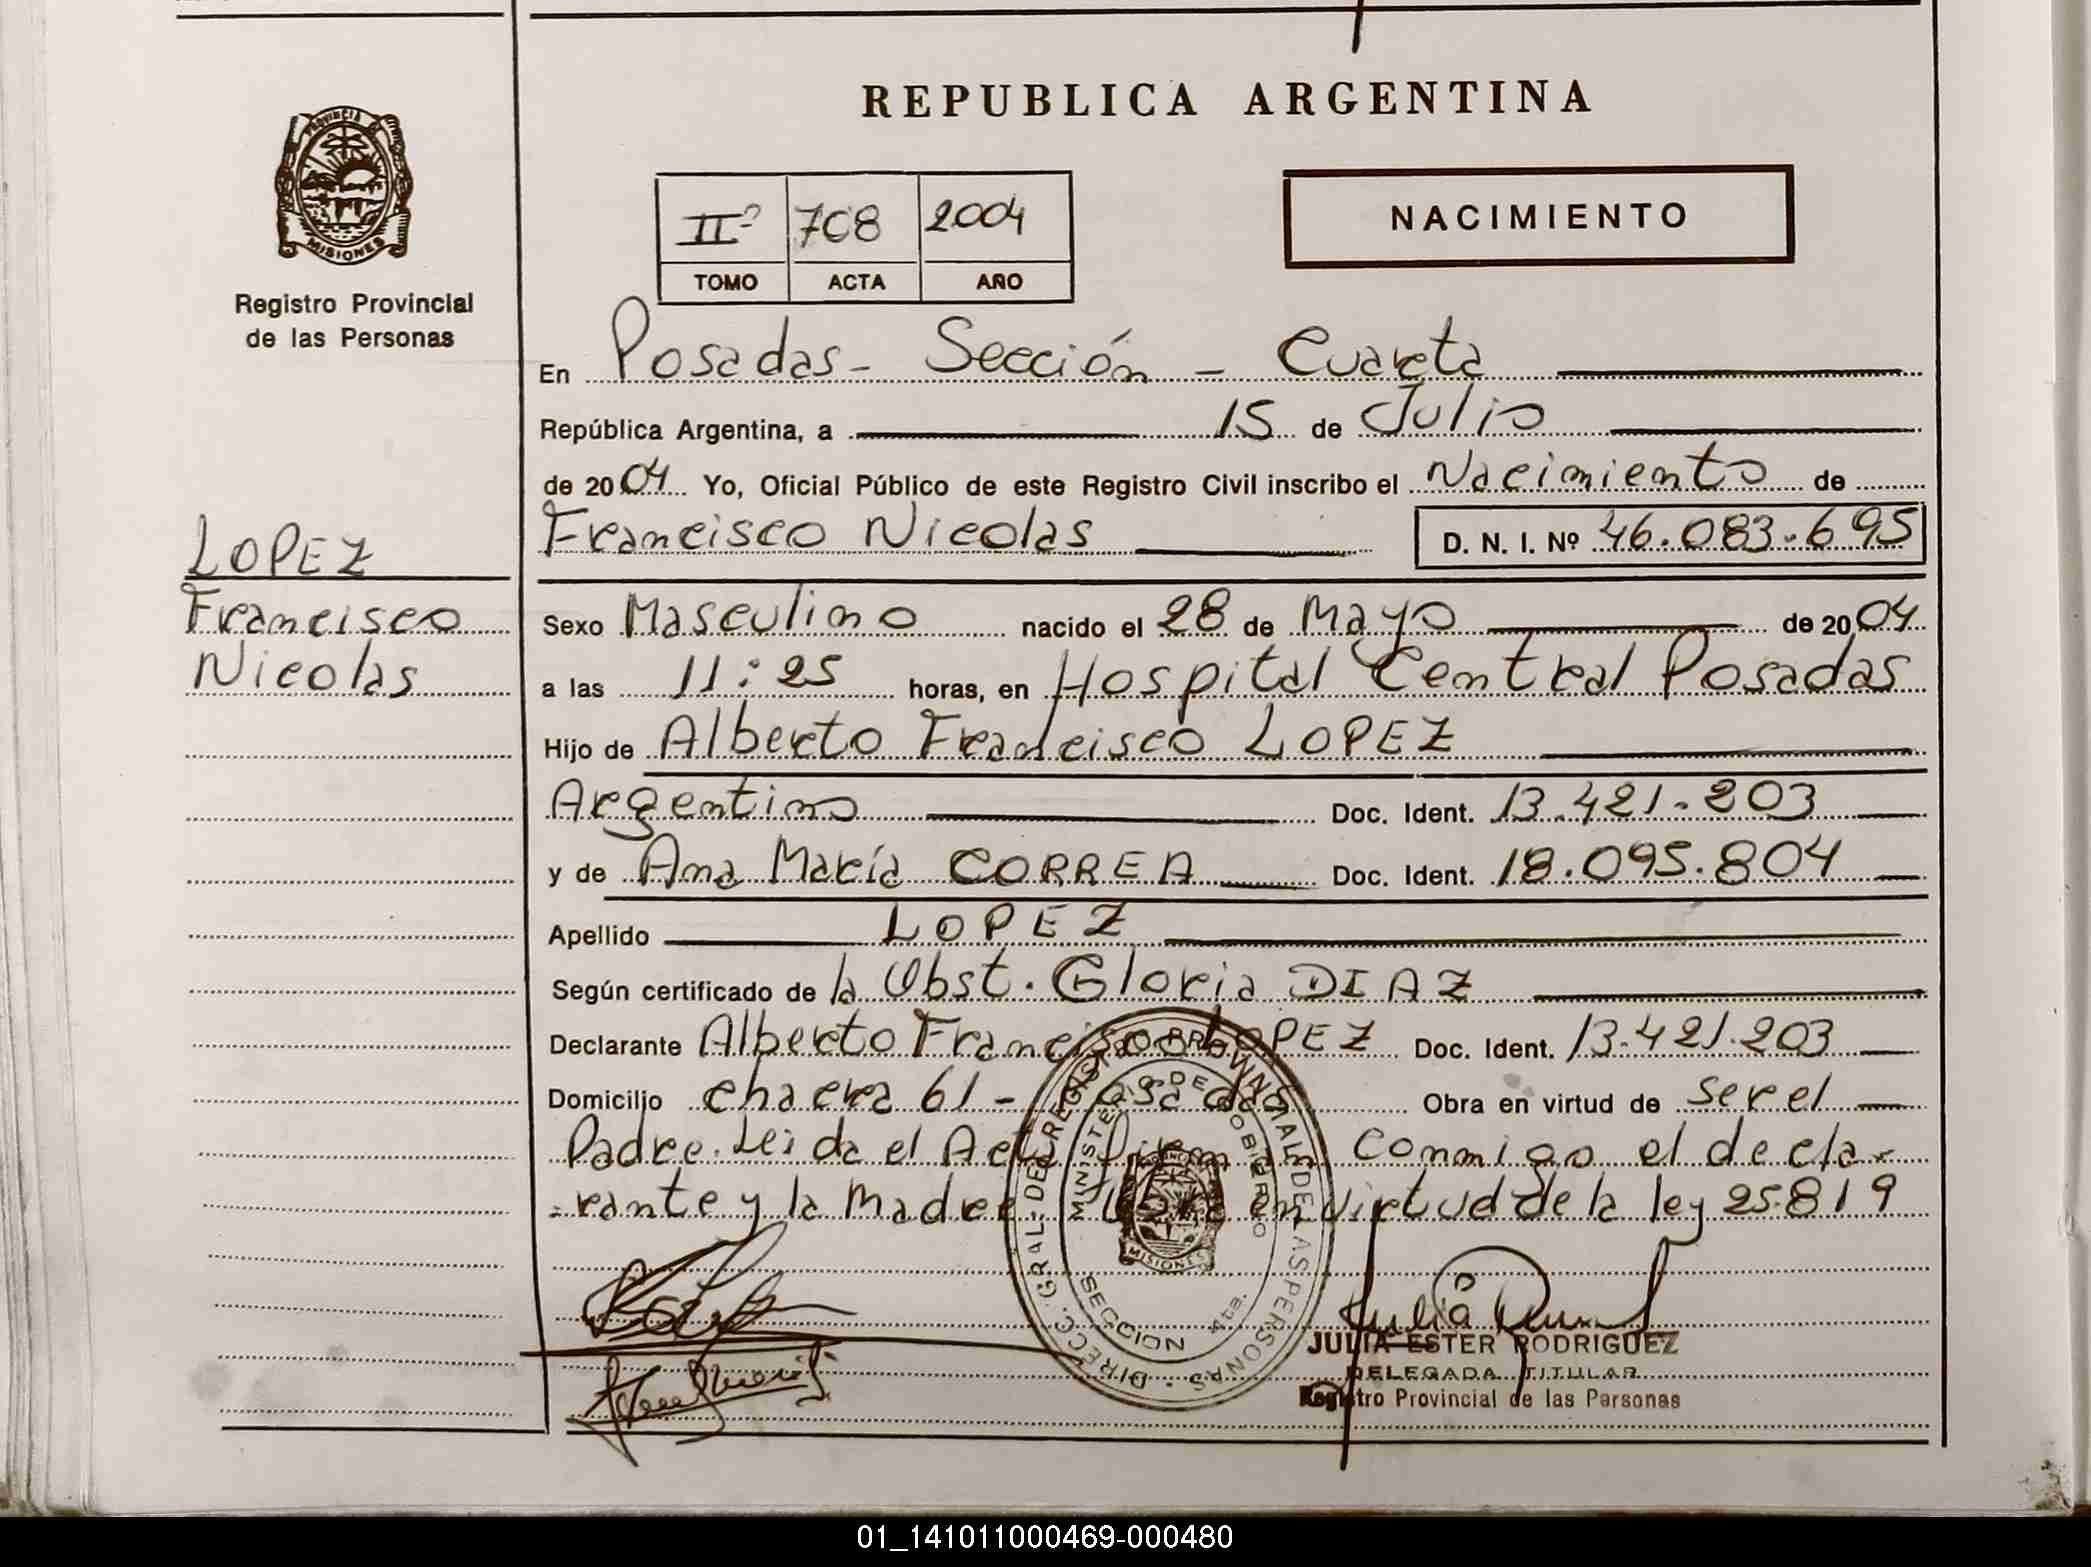 REPUBLICA ARGENTINA
PROVINCIA D
MISIONES
Registro Provincial
de las Personas
IIº 708 2004
TOMO ACTA AÑO
NACIMIENTO
En Posadas - Sección - Cuarta
República Argentina, a 15 de Julio
de 2004 Yo, Oficial Público de este Registro Civil inscribo el Nacimiento de
Francisco Nicolas D. N. I. Nº 46.083.695
LOPEZ
Francisco
Nicolas
Sexo Masculino nacido el 28 de Mayo de 2004
a las 11:25 horas, en Hospital Central Posadas
Hijo de Alberto Francisco LOPEZ
Argentino Doc. Ident. 13.421.203
y de Ana María CORREA Doc. Ident. 18.095.804
Apellido LOPEZ
Según certificado de la Obst. Gloria DIAZ
Declarante Alberto Francisco LOPEZ Doc. Ident. 13.421.203
Domicilio chacra 61 - Posadas Obra en virtud de ser el
Padre. Leida el Acta Firman Conmigo el decla-
-rante y la Madre en virtud de la ley 25.819
DIRECC. GRAL. DEL REGISTRO PROVINCIAL DE LAS PERSONAS
MINISTERIO DE GOBIERNO
MISIONES
SECCION 4ta.
JULIA ESTER RODRIGUEZ
DELEGADA TITULAR
Registro Provincial de las Personas
01_141011000469-000480